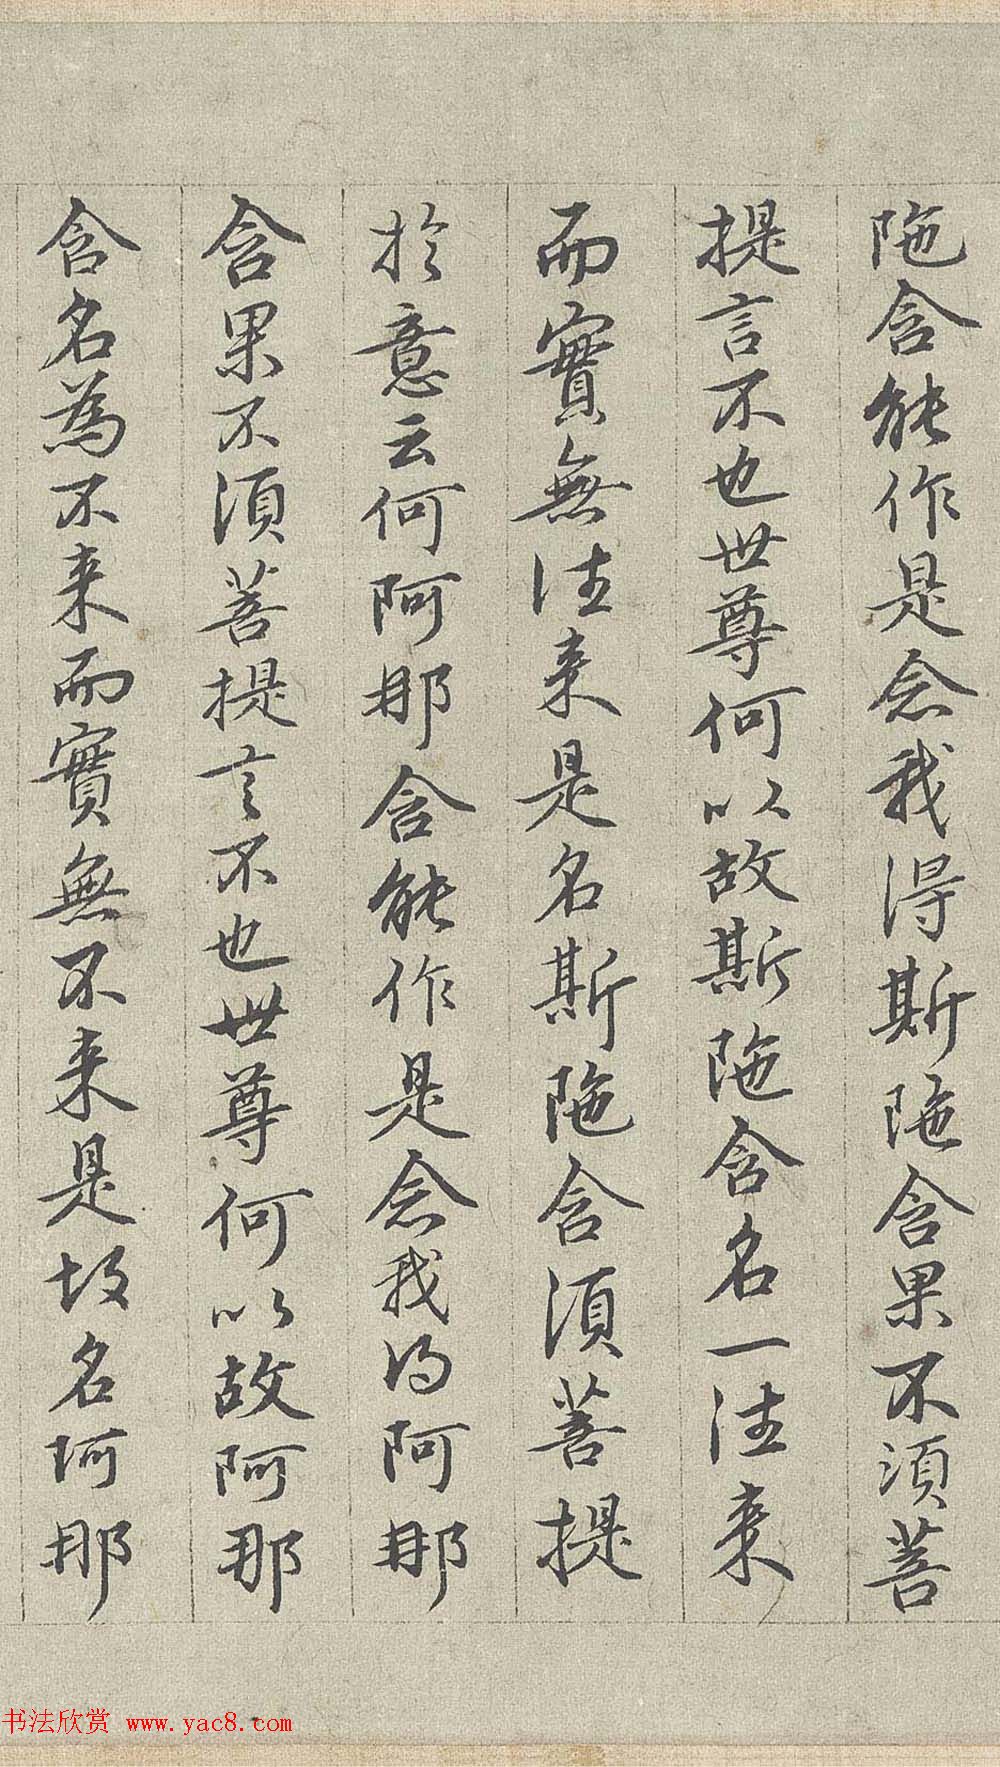 陁含能作是念我得斯陁含果不須菩
提言不也世尊何以故斯陁含名一往来
而實無往来是名斯陁含須菩提
於意云何阿那含能作是念我得阿那
含果不須菩提言不也世尊何以故阿那
含名為不来而實無不来是故名阿那
书法欣赏 www.yac8.com